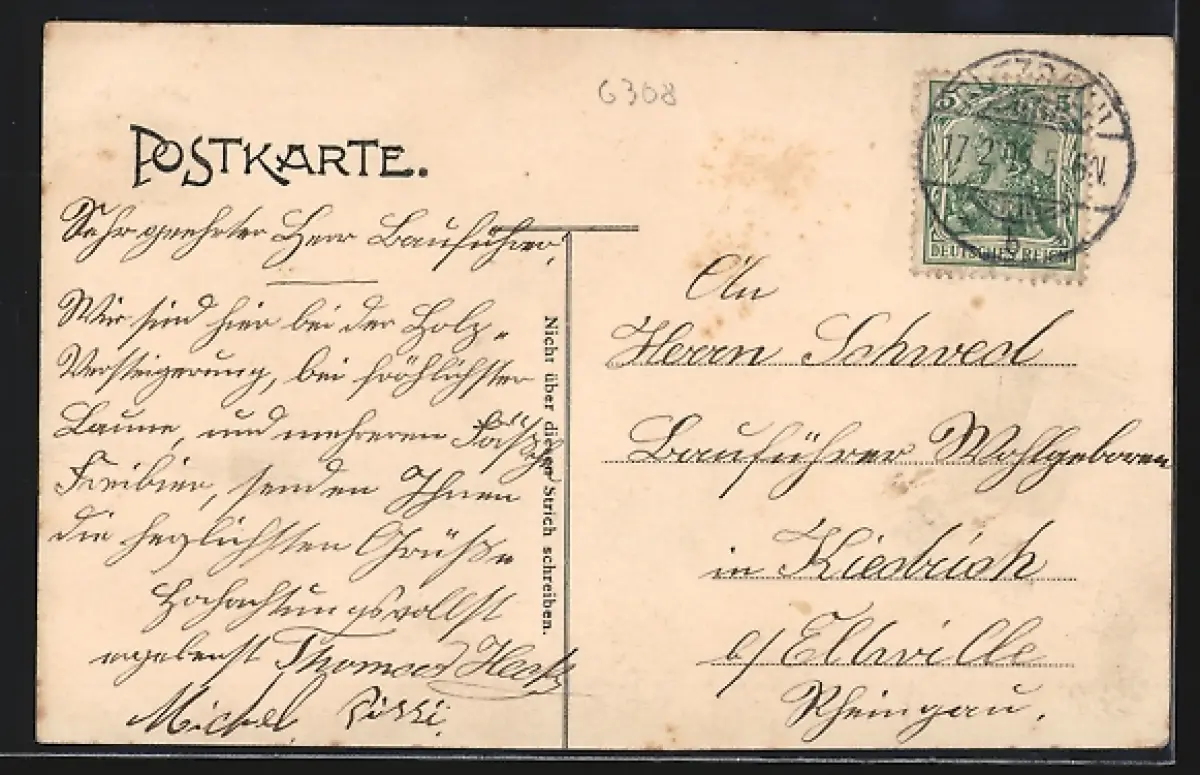 6308
POSTKARTE.
Sehr geehrter Herr Bauführer,
Wir sind hier bei der Holz-
Versteigerung, bei fröhlichster
Laune, und mehreren Fäßchen
Freibier, senden Ihnen
die herzlichsten Grüße
Hochachtungsvollst
ergebenst Thomas
Michel.
Nicht über diesen Strich schreiben.
5 5
17.2. 5-6N.
b
DEUTSCHES REICH
An
Herrn Schwed
Bauführer Wohlgeboren
in Kiedrich
b/ Eltville
Rheingau.